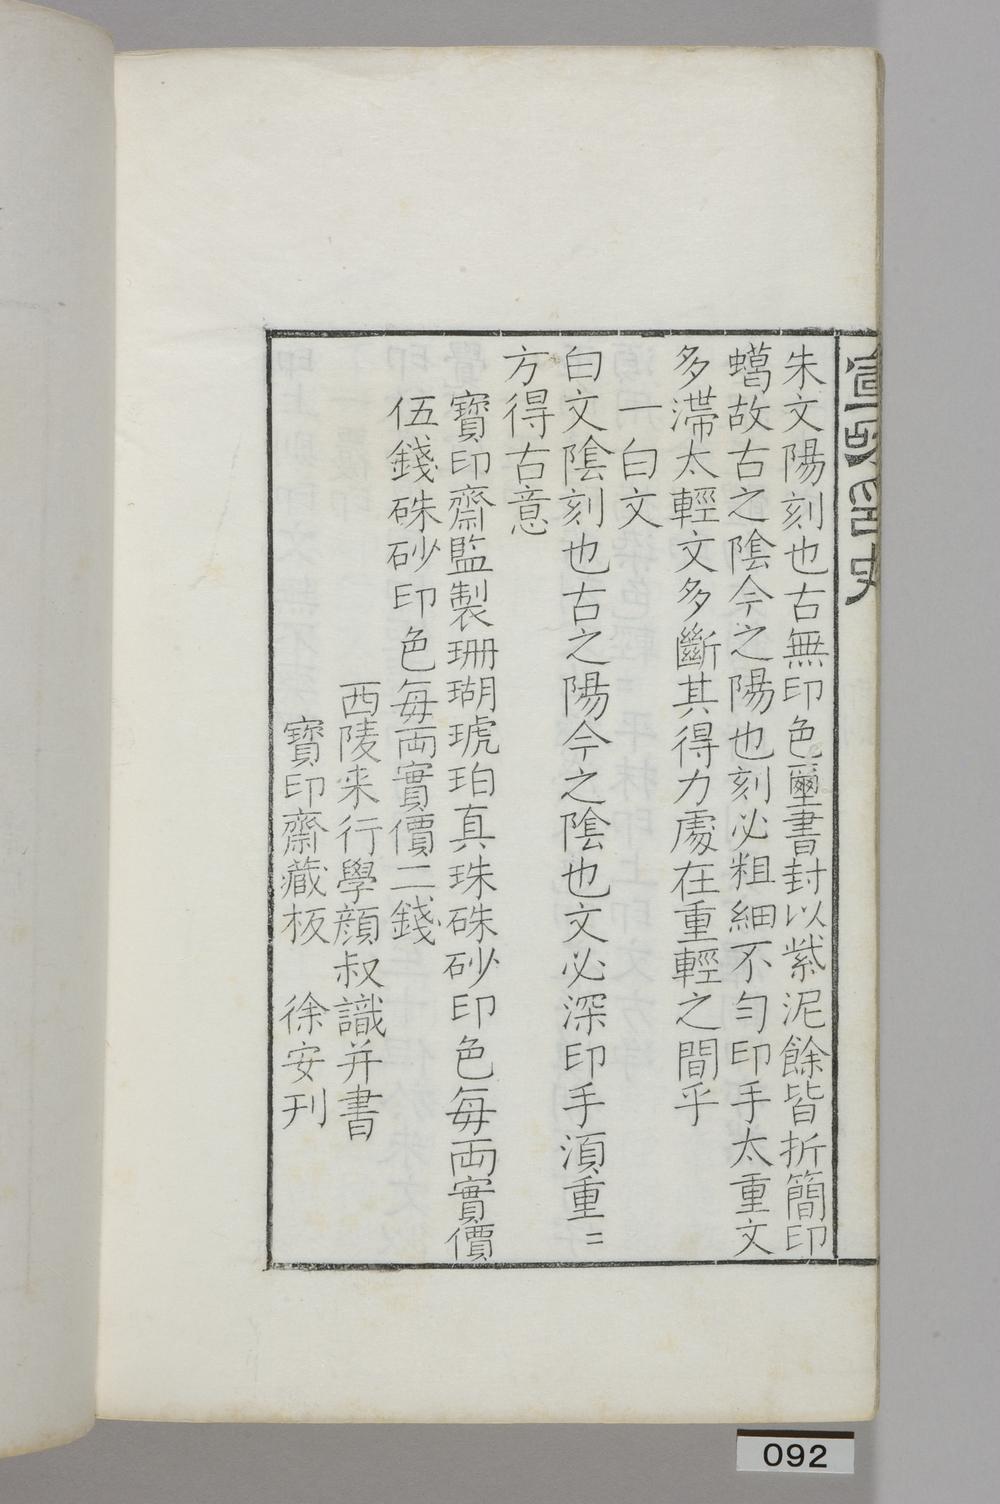 朱文陽刻也古無印色璽書封以紫泥餘皆折簡印
蠟故古之陰今之陽也刻必粗細不勻印手太重文
多滯太輕文多斷其得力處在重輕之間乎
一白文
白文陰刻也古之陽今之陰也文必深印手須重〻
方得古意
寶印齋監製珊瑚琥珀真珠硃砂印色每両實價
伍錢硃砂印色每両實價二錢
西陵来行學顔叔識并書
寶印齋藏板 徐安刊
092